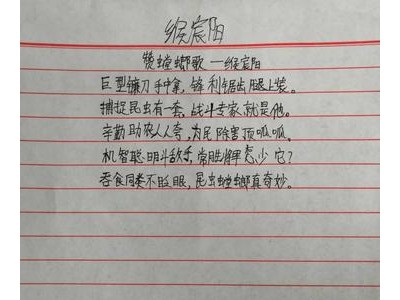 缑宸阳
赞螳螂歌——缑宸阳
巨型镰刀手中拿,锋利锯齿腿上装。
捕捉昆虫有一套,战斗专家就是他。
辛勤助农人人夸,为民除害顶呱呱。
机智聪明斗敌手,常胜将军怎少它?
吞食同类不眨眼,昆虫螳螂真奇妙。